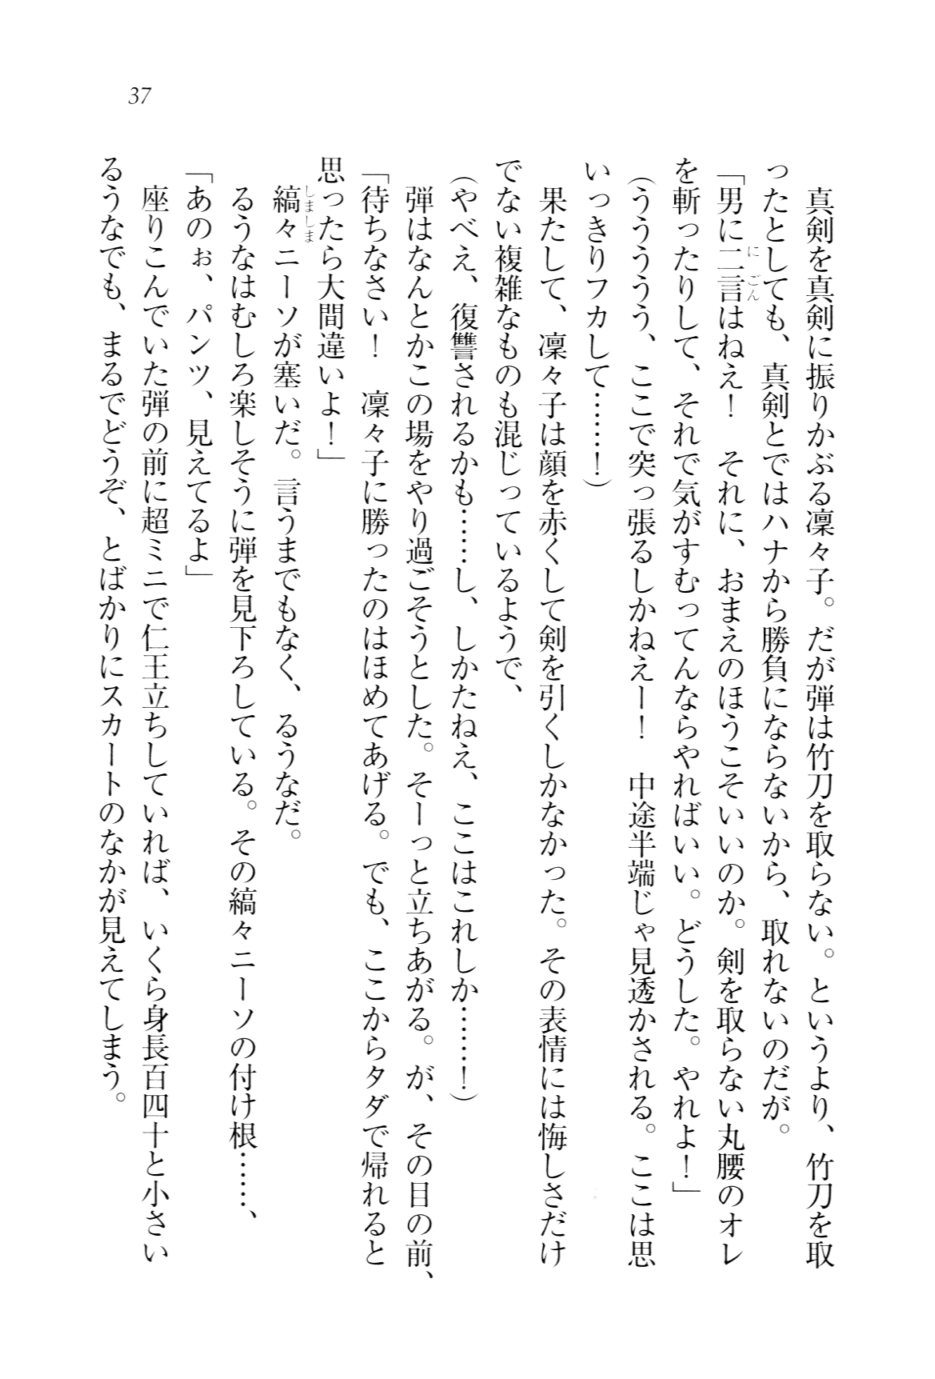 37
真剣を真剣に振りかぶる凜々子。だが弾は竹刀を取らない。というより、竹刀を取
ったとしても、真剣とではハナから勝負にならないから、取れないのだが。
「男に二言はねえ！　それに、おまえのほうこそいいのか。剣を取らない丸腰のオレ
を斬ったりして、それで気がすむってんならやればいい。どうした。やれよ！」
（うううう、ここで突っ張るしかねえー！　中途半端じゃ見透かされる。ここは思
いっきりフカして……！）
果たして、凜々子は顔を赤くして剣を引くしかなかった。その表情には悔しさだけ
でない複雑なものも混じっているようで、
（やべえ、復讐されるかも……し、しかたねえ、ここはこれしか……！）
弾はなんとかこの場をやり過ごそうとした。そーっと立ちあがる。が、その目の前、
「待ちなさい！　凜々子に勝ったのはほめてあげる。でも、ここからタダで帰れると
思ったら大間違いよ！」
縞々ニーソが塞いだ。言うまでもなく、るうなだ。
るうなはむしろ楽しそうに弾を見下ろしている。その縞々ニーソの付け根……、
「あのぉ、パンツ、見えてるよ」
座りこんでいた弾の前に超ミニで仁王立ちしていれば、いくら身長百四十と小さい
るうなでも、まるでどうぞ、とばかりにスカートのなかが見えてしまう。